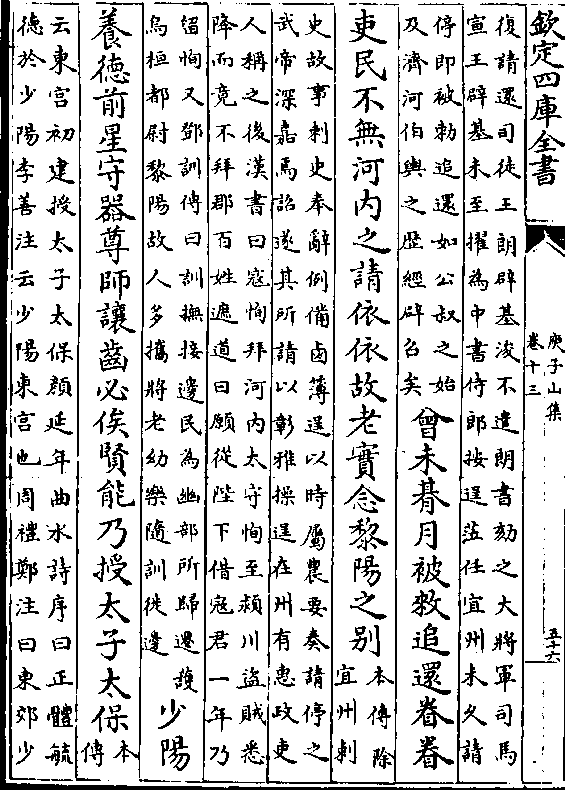 欽定四庫全書
庾子山集
卷十三
五十六
復請還司徒王朗辟基浚不遣朗書劾之大將軍司馬
宣王辟基未至擢為中書侍郎按逞莅任宜州未久請
停即被勅追還如公叔之始
及濟河伯輿之歴經辟召矣
曾未朞月被敕追還眷眷
吏民不無河内之請依依故老實念黎陽之别
本傳除
宜州刺
史故事刺史奉辭例備鹵簿逞以時屬農要奏請停之
武帝深嘉焉詔遂其所請以彰雅操逞在州有惠政吏
人稱之後漢書曰寇恂拜河内太守恂至潁川盗賊悉
降而竟不拜郡百姓遮道曰願從陛下借寇君一年乃
留恂又鄧訓傳曰訓撫接邊民為幽部所歸遷護
烏桓都尉黎陽故人多攜將老幼樂隨訓徙邊
少陽
養德前星守器尊師讓齒必俟賢能乃授太子太保
本
傳
云東宫初建授太子太保顔延年曲水詩序曰正體毓
德於少陽李善注云少陽東宫也周禮鄭注曰東郊少